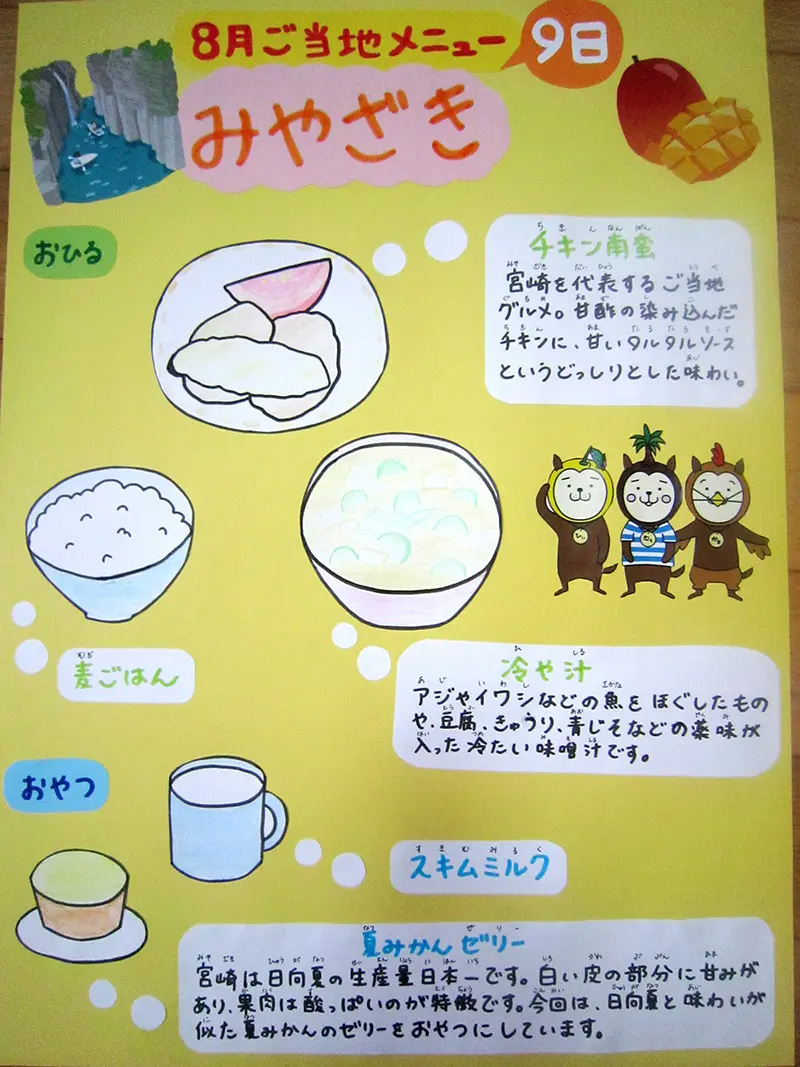 8月ご当地メニュー
9日
みやざき
おひる
チキン南蛮
宮崎を代表するご当地
グルメ。甘酢の染み込んだ
チキンに、甘いタルタルソース
というどっしりとした味わい。
ひぃ
むぅ
かぁ
麦ごはん
冷や汁
アジやイワシなどの魚をほぐしたもの
や、豆腐、きゅうり、青じそなどの薬味が
入った冷たい味噌汁です。
おやつ
スキムミルク
夏みかんゼリー
宮崎は日向夏の生産量日本一です。白い皮の部分に甘みが
あり、果肉は酸っぱいのが特徴です。今回は、日向夏と味わいが
似た夏みかんのゼリーをおやつにしています。